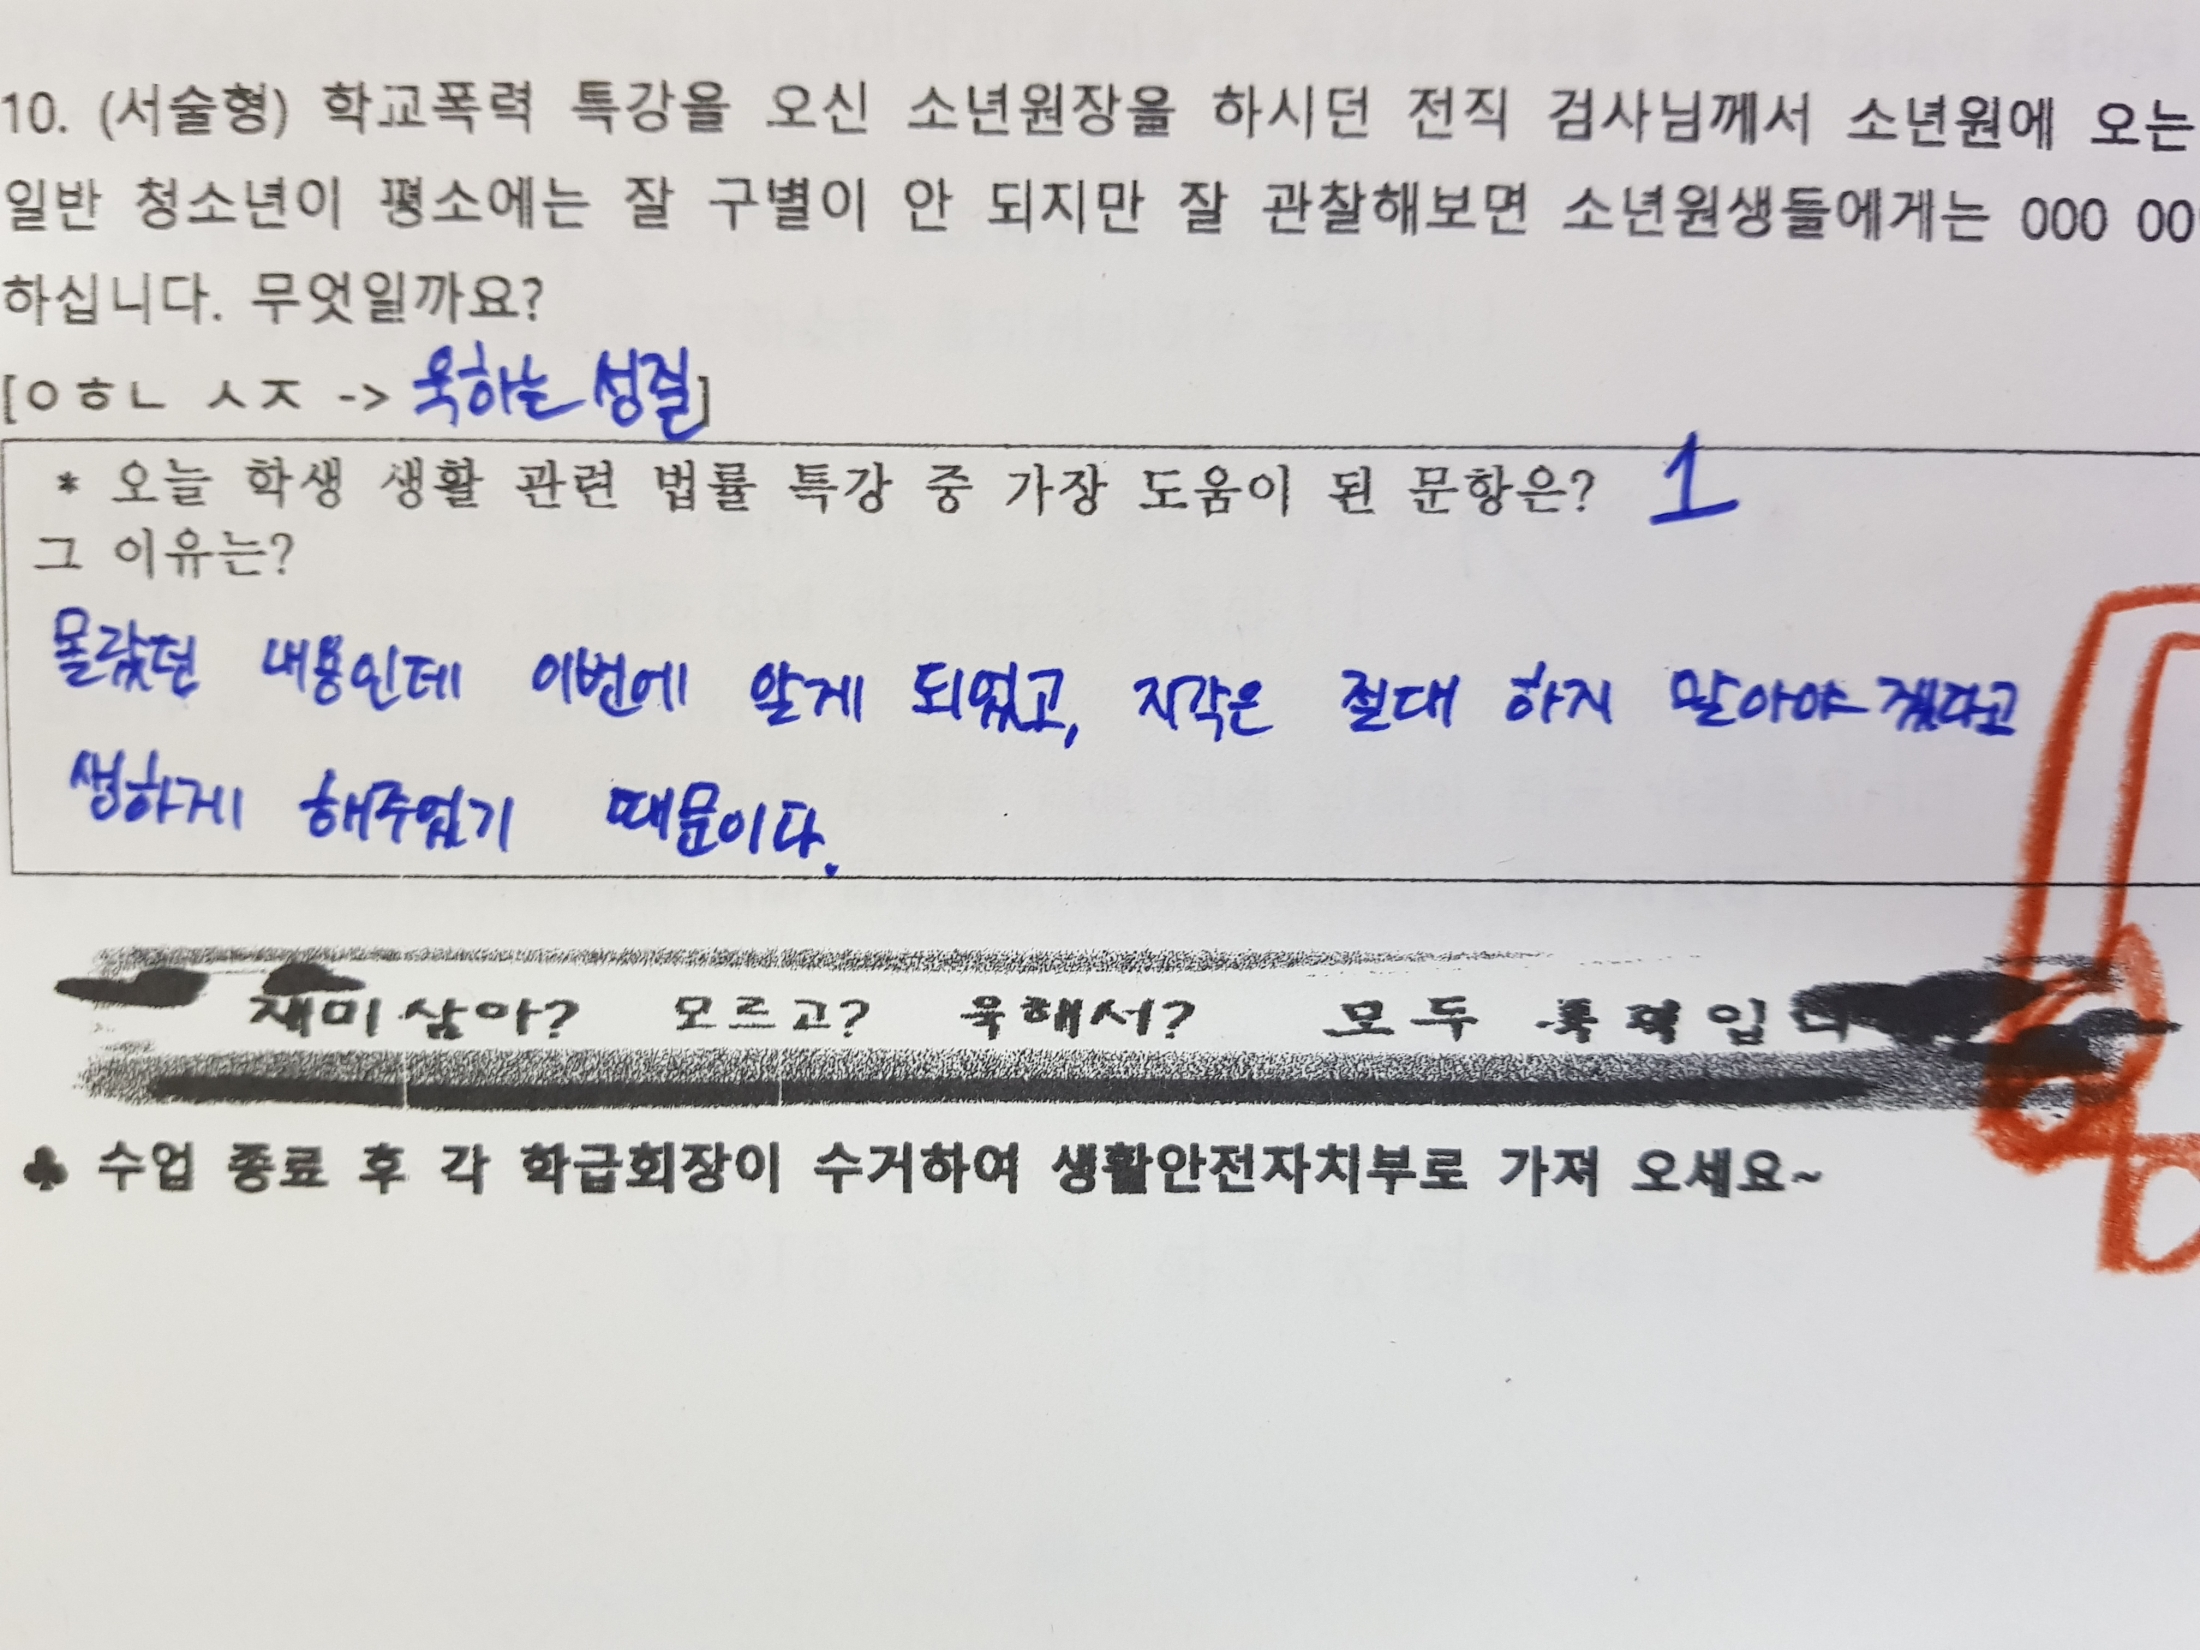 10. (서술형) 학교폭력 특강을 오신 소년원장을 하시던 전직 검사님께서 소년원에 오는
일반 청소년이 평소에는 잘 구별이 안 되지만 잘 관찰해보면 소년원생들에게는 OOO OO
하십니다. 무엇일까요?
[ㅇㅎㄴ ㅅㅈ -> 욱하는 성질]
* 오늘 학생 생활 관련 법률 특강 중 가장 도움이 된 문항은? 1
그 이유는?
몰랐던 내용인데 이번에 알게 되었고, 지각은 절대 하지 말아야겠다고
생하게 해주었기 때문이다.
재미삼아? 모르고? 욱해서? 모두 폭력입니
♣ 수업 종료 후 각 학급회장이 수거하여 생활안전자치부로 가져 오세요~